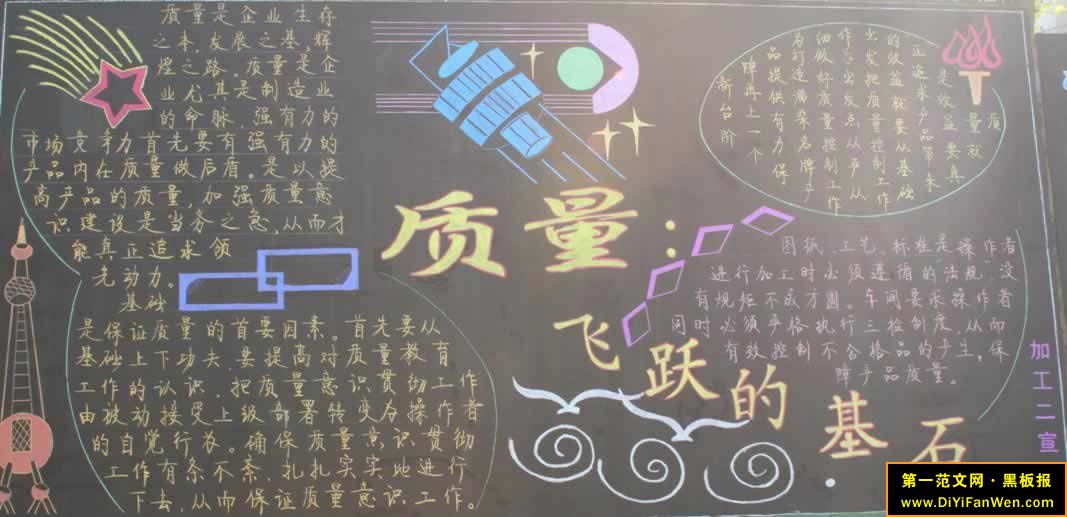 质量是企业生存
之本，发展之基，辉
煌之路。质量是企
业尤其是制造业
的命脉。强有力的
市场竞争力首先要有强有力的
产品内在质量做后盾。是以提
高产品的质量，加强质量意
识建设是当务之急，从而才
能真正追求领
先动力。
基础
是保证质量的首要因素。首先要从
基础上下功夫，要提高对质量教育
工作的认识，把质量意识贯彻工作
由被动接受上级部署转变为操作者
的自觉行为。确保质量意识贯彻
工作有条不紊，扎扎实实地进行
下去，从而保证质量意识工作。
质量：
飞跃的基石
质量就
是效益，要真
正追求产品带来
的效益就要从基础
出发把质量控制工作
作为出发点从严从
细做好质量控制工作
为打造柴名牌产
品提供有力保
障再上一个
新台阶
图纸、工艺、标准是操作者
进行加工时必须遵循的法规，没
有规矩不成方圆。车间要求操作者
同时必须严格执行三检制度，从而
有效控制不合格品的产生。保
障产品质量。
加工二宣
第一范文网·黑板报
www.DiYiFanWen.com